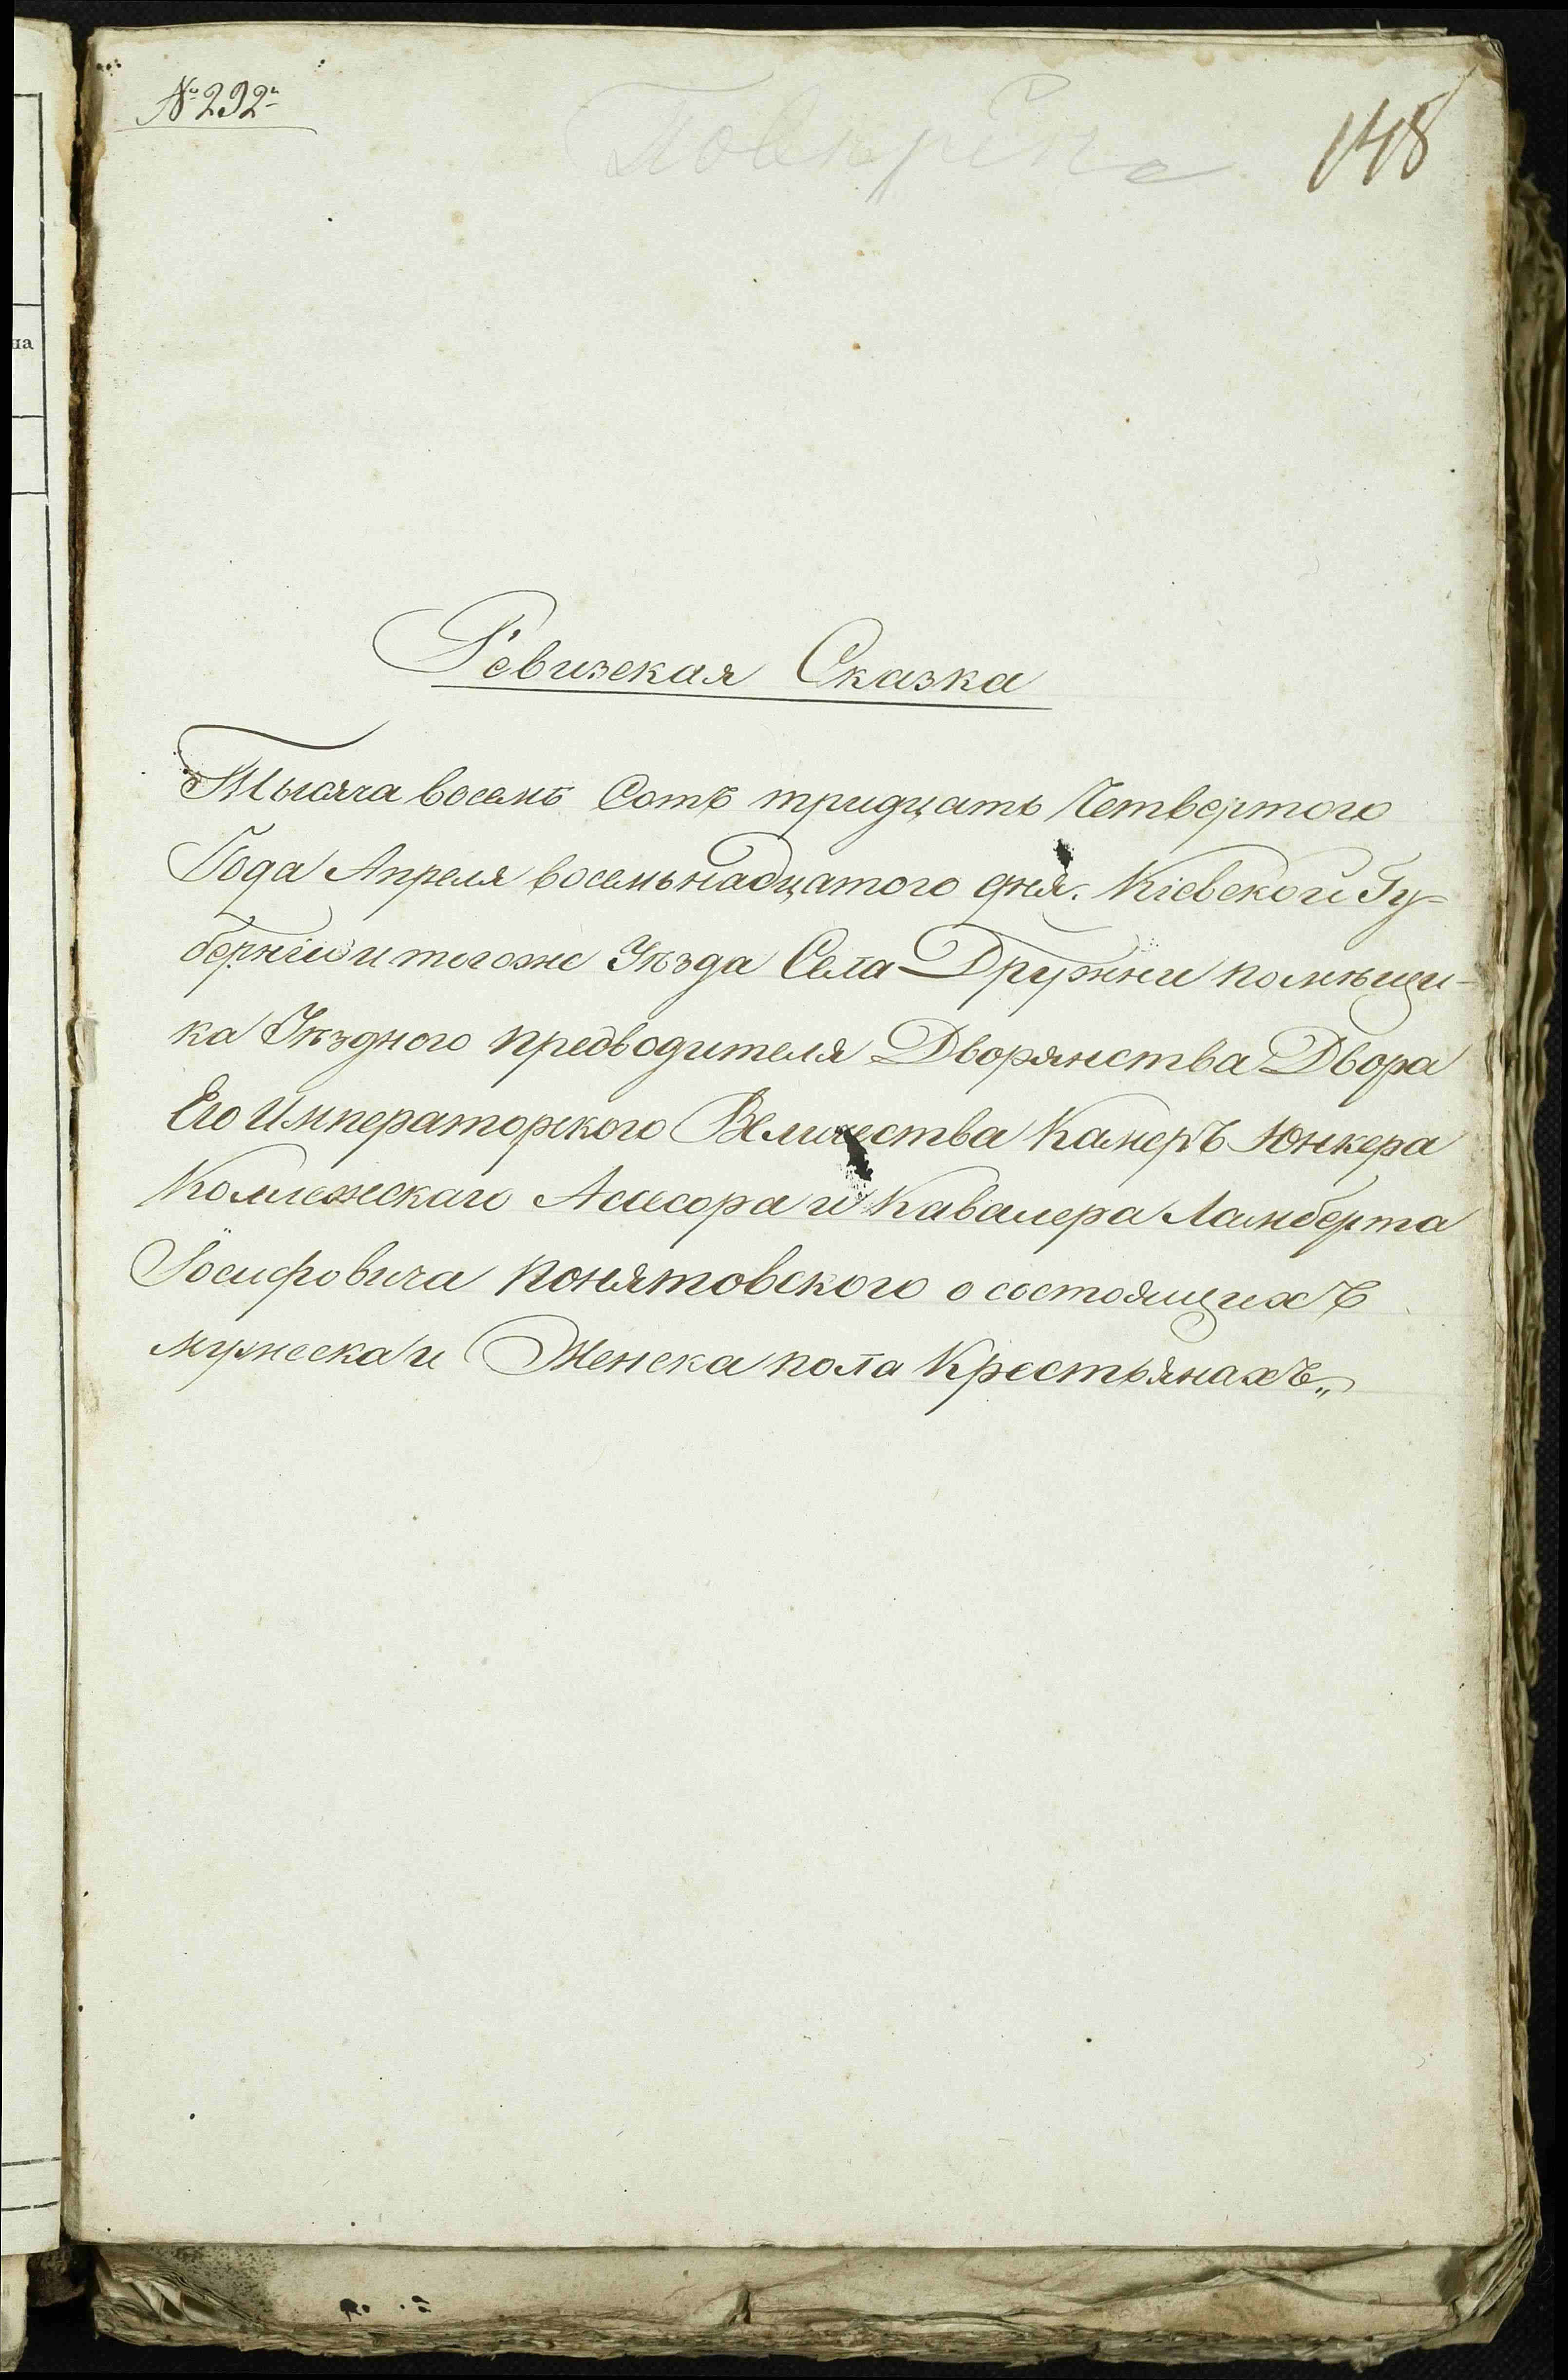 № 292й
Повѣрена
148
Ревизская Сказка
Тысяча восемь Сотъ тридцать Четвертого
Года Апреля восемьнадцатого дня. Кіевской Гу=
берніи и тогоже Уѣзда Села Дружни помѣщи-
ка Уѣздного предводителя Дворянства Двора
Его Императорского Величества Камеръ Юнкера
Коллежскаго Асесора и Кавалера Ламберта
Іосифовича Понятовского о состоящихъ
мужеска и Женска пола Крестьянахъ„